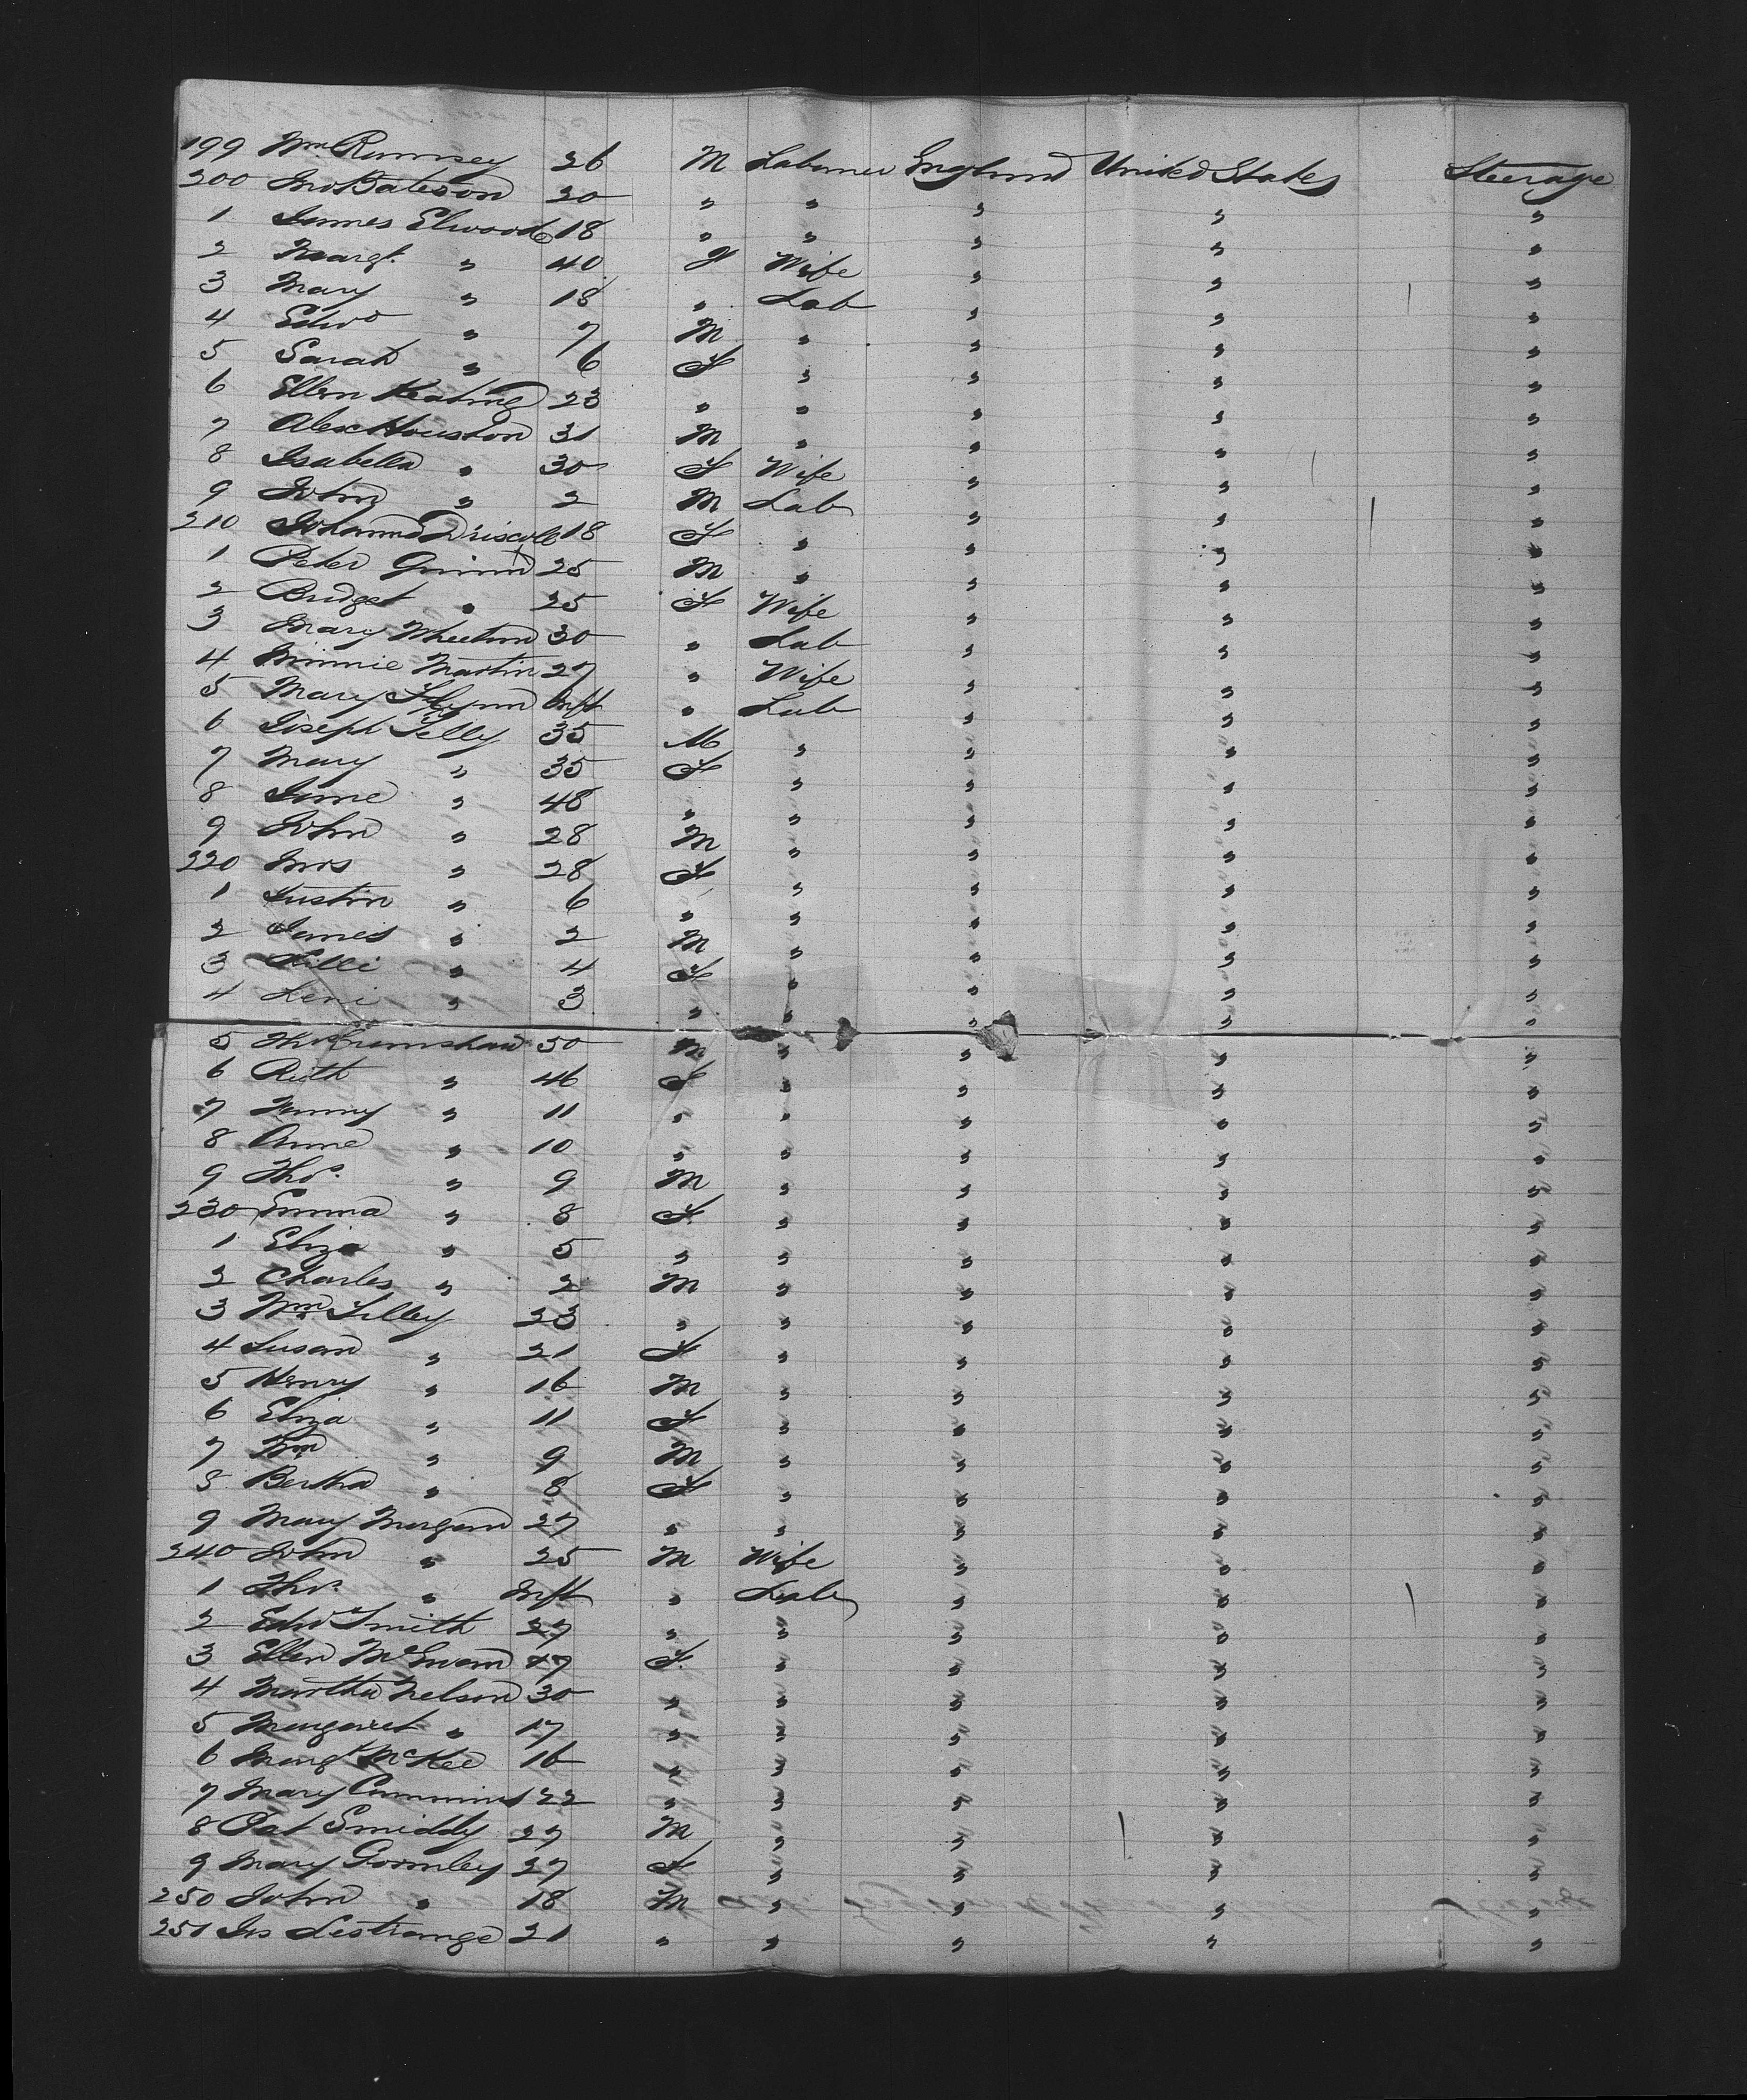 199 Wm Rumsey 26 M Labourer England United States Steerage
200 Jno Bateson 20 " " " " "
1 James Elwood 18 " " " " "
2 Margt. " 40 F Wife " " "
3 Mary " 18 " Lab " " "
4 Edwd " 7 M " " " "
5 Sarah " 6 F " " " "
6 Ellen Keating 23 " " " " "
7 Alex Houston 31 M " " " "
8 Isabella " 30 F Wife " " "
9 John " 2 M Lab " " "
210 Johanna Driscoll 18 F " " " "
1 Peter Quinn 25 M " " " "
2 Bridget " 25 F Wife " " "
3 Mary Wheeton 30 " Lab " " "
4 Minnie Martin 27 " Wife " " "
5 Mary Flynn Inft " Lab " " "
6 Joseph Tilly 35 M " " " "
7 Mary " 35 F " " " "
8 Jane " 48 " " " " "
9 John " 28 M " " " "
220 Mrs " 28 F " " " "
1 Justin " 6 " " " " "
2 James " 2 M " " " "
3 Lilli " 4 F " " " "
4 Leni " 3 " " " " "
5 Thos Crumshaw 50 M " " " "
6 Ruth " 46 F " " " "
7 Fanny " 11 " " " " "
8 Anne " 10 " " " " "
9 Thos. " 9 M " " " "
230 Emma " 8 F " " " "
1 Eliza " 5 " " " " "
2 Charles " 2 M " " " "
3 Wm Tilley 23 " " " " "
4 Susan " 21 F " " " "
5 Henry " 16 M " " " "
6 Eliza " 11 F " " " "
7 Wm " 9 M " " " "
8 Bertha " 8 F " " " "
9 Mary Morgan 27 " " " " "
240 John " 25 M Wife " " "
1 Thos. " Inft " Lab " " "
2 Edwd Smith 27 " " " " "
3 Ellen 17 F " " " "
4 Martha Nelson 30 " " " " "
5 Margaret " 17 " " " " "
6 Margt McKee 16 " " " " "
7 Mary Cummins 22 " " " " "
8 Pat Smiddy 27 M " " " "
9 Mary Gormley 27 F " " " "
250 John " 18 M " " " "
251 Jas Lestrange 21 " " " " "